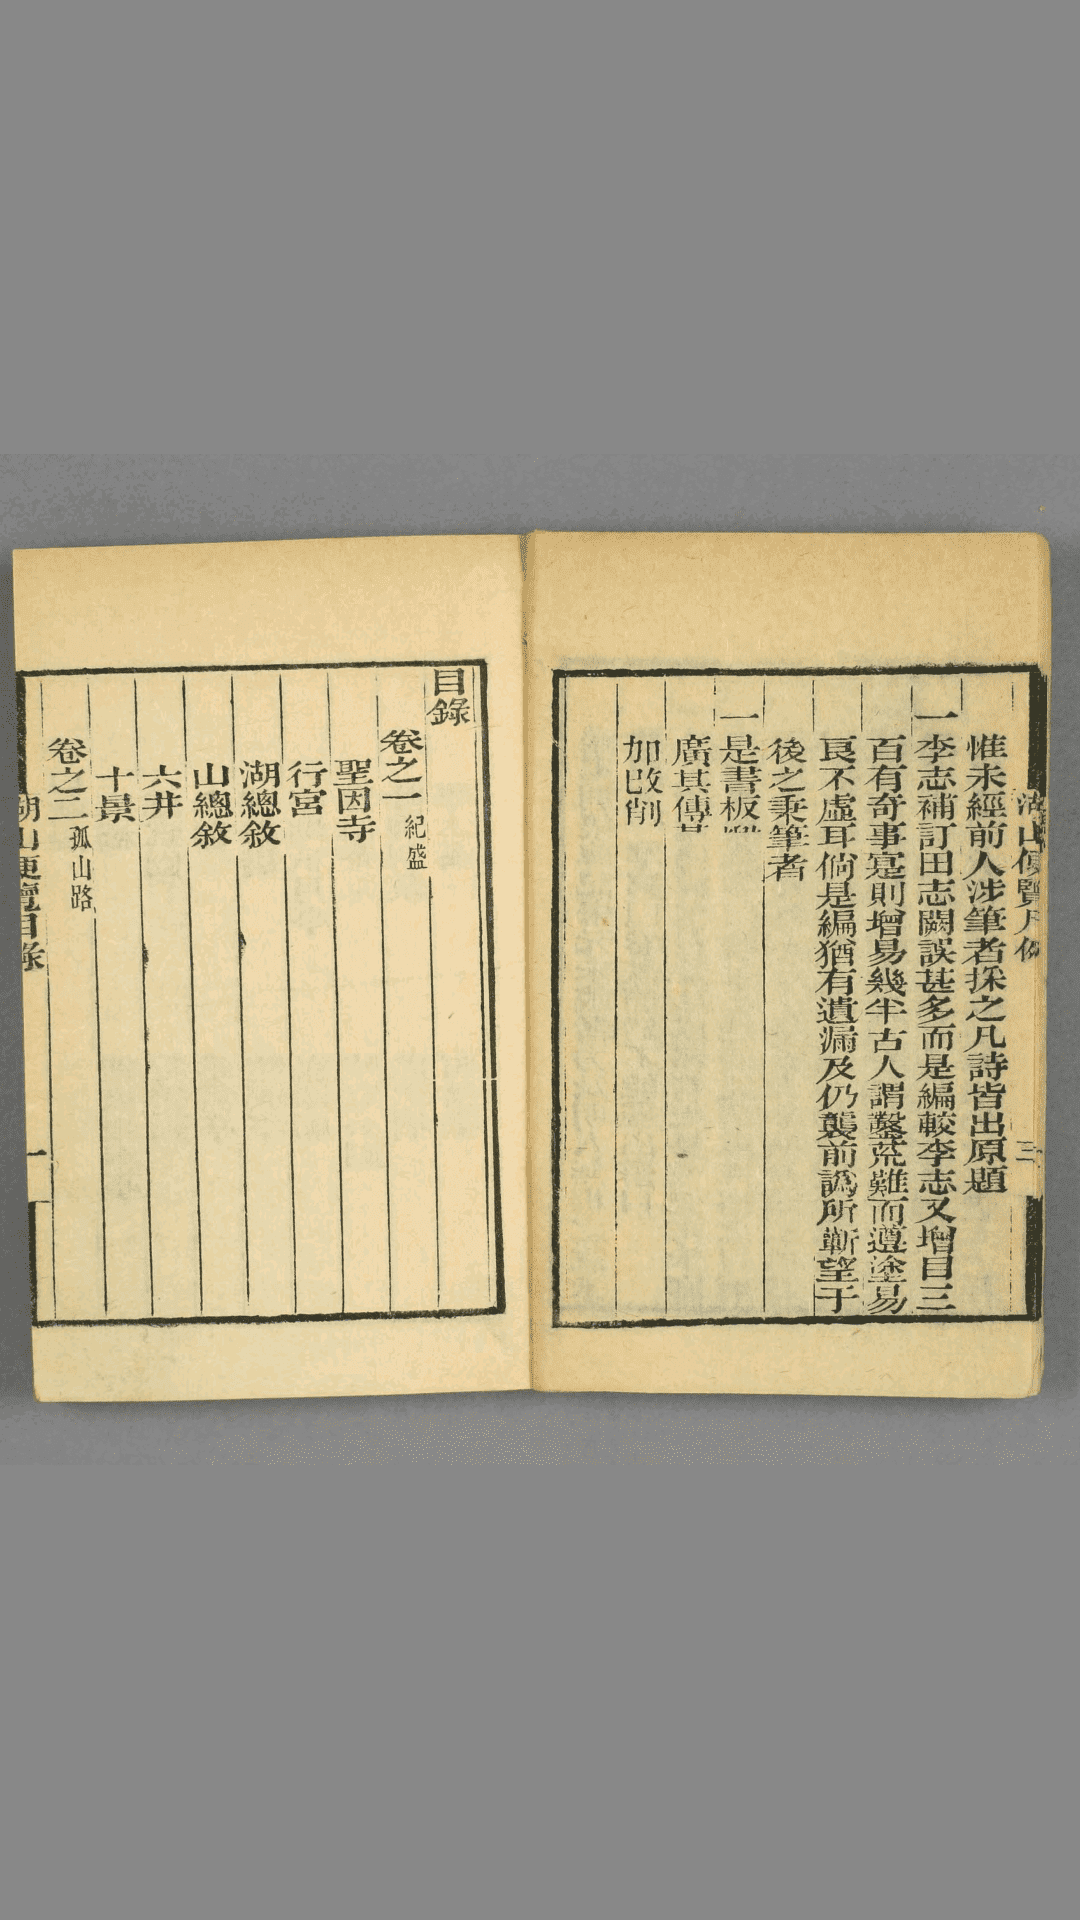 惟未經前人涉筆者採之凡詩皆出原題
一李志補訂田志闕誤甚多而是編較李志又增目三
百有奇事寔則增易幾半古人謂鑿荒難而遵塗易
良不虛耳倘是編猶有遺漏及仍襲前譌所蘄望于
後之秉筆者
一是書板
廣其傳
加改削
湖山便覽凡例
三
目錄
卷之一 紀盛
聖因寺
行宮
湖總敘
山總敘
六井
十景
卷之二 孤山路
湖山便覽目錄
一